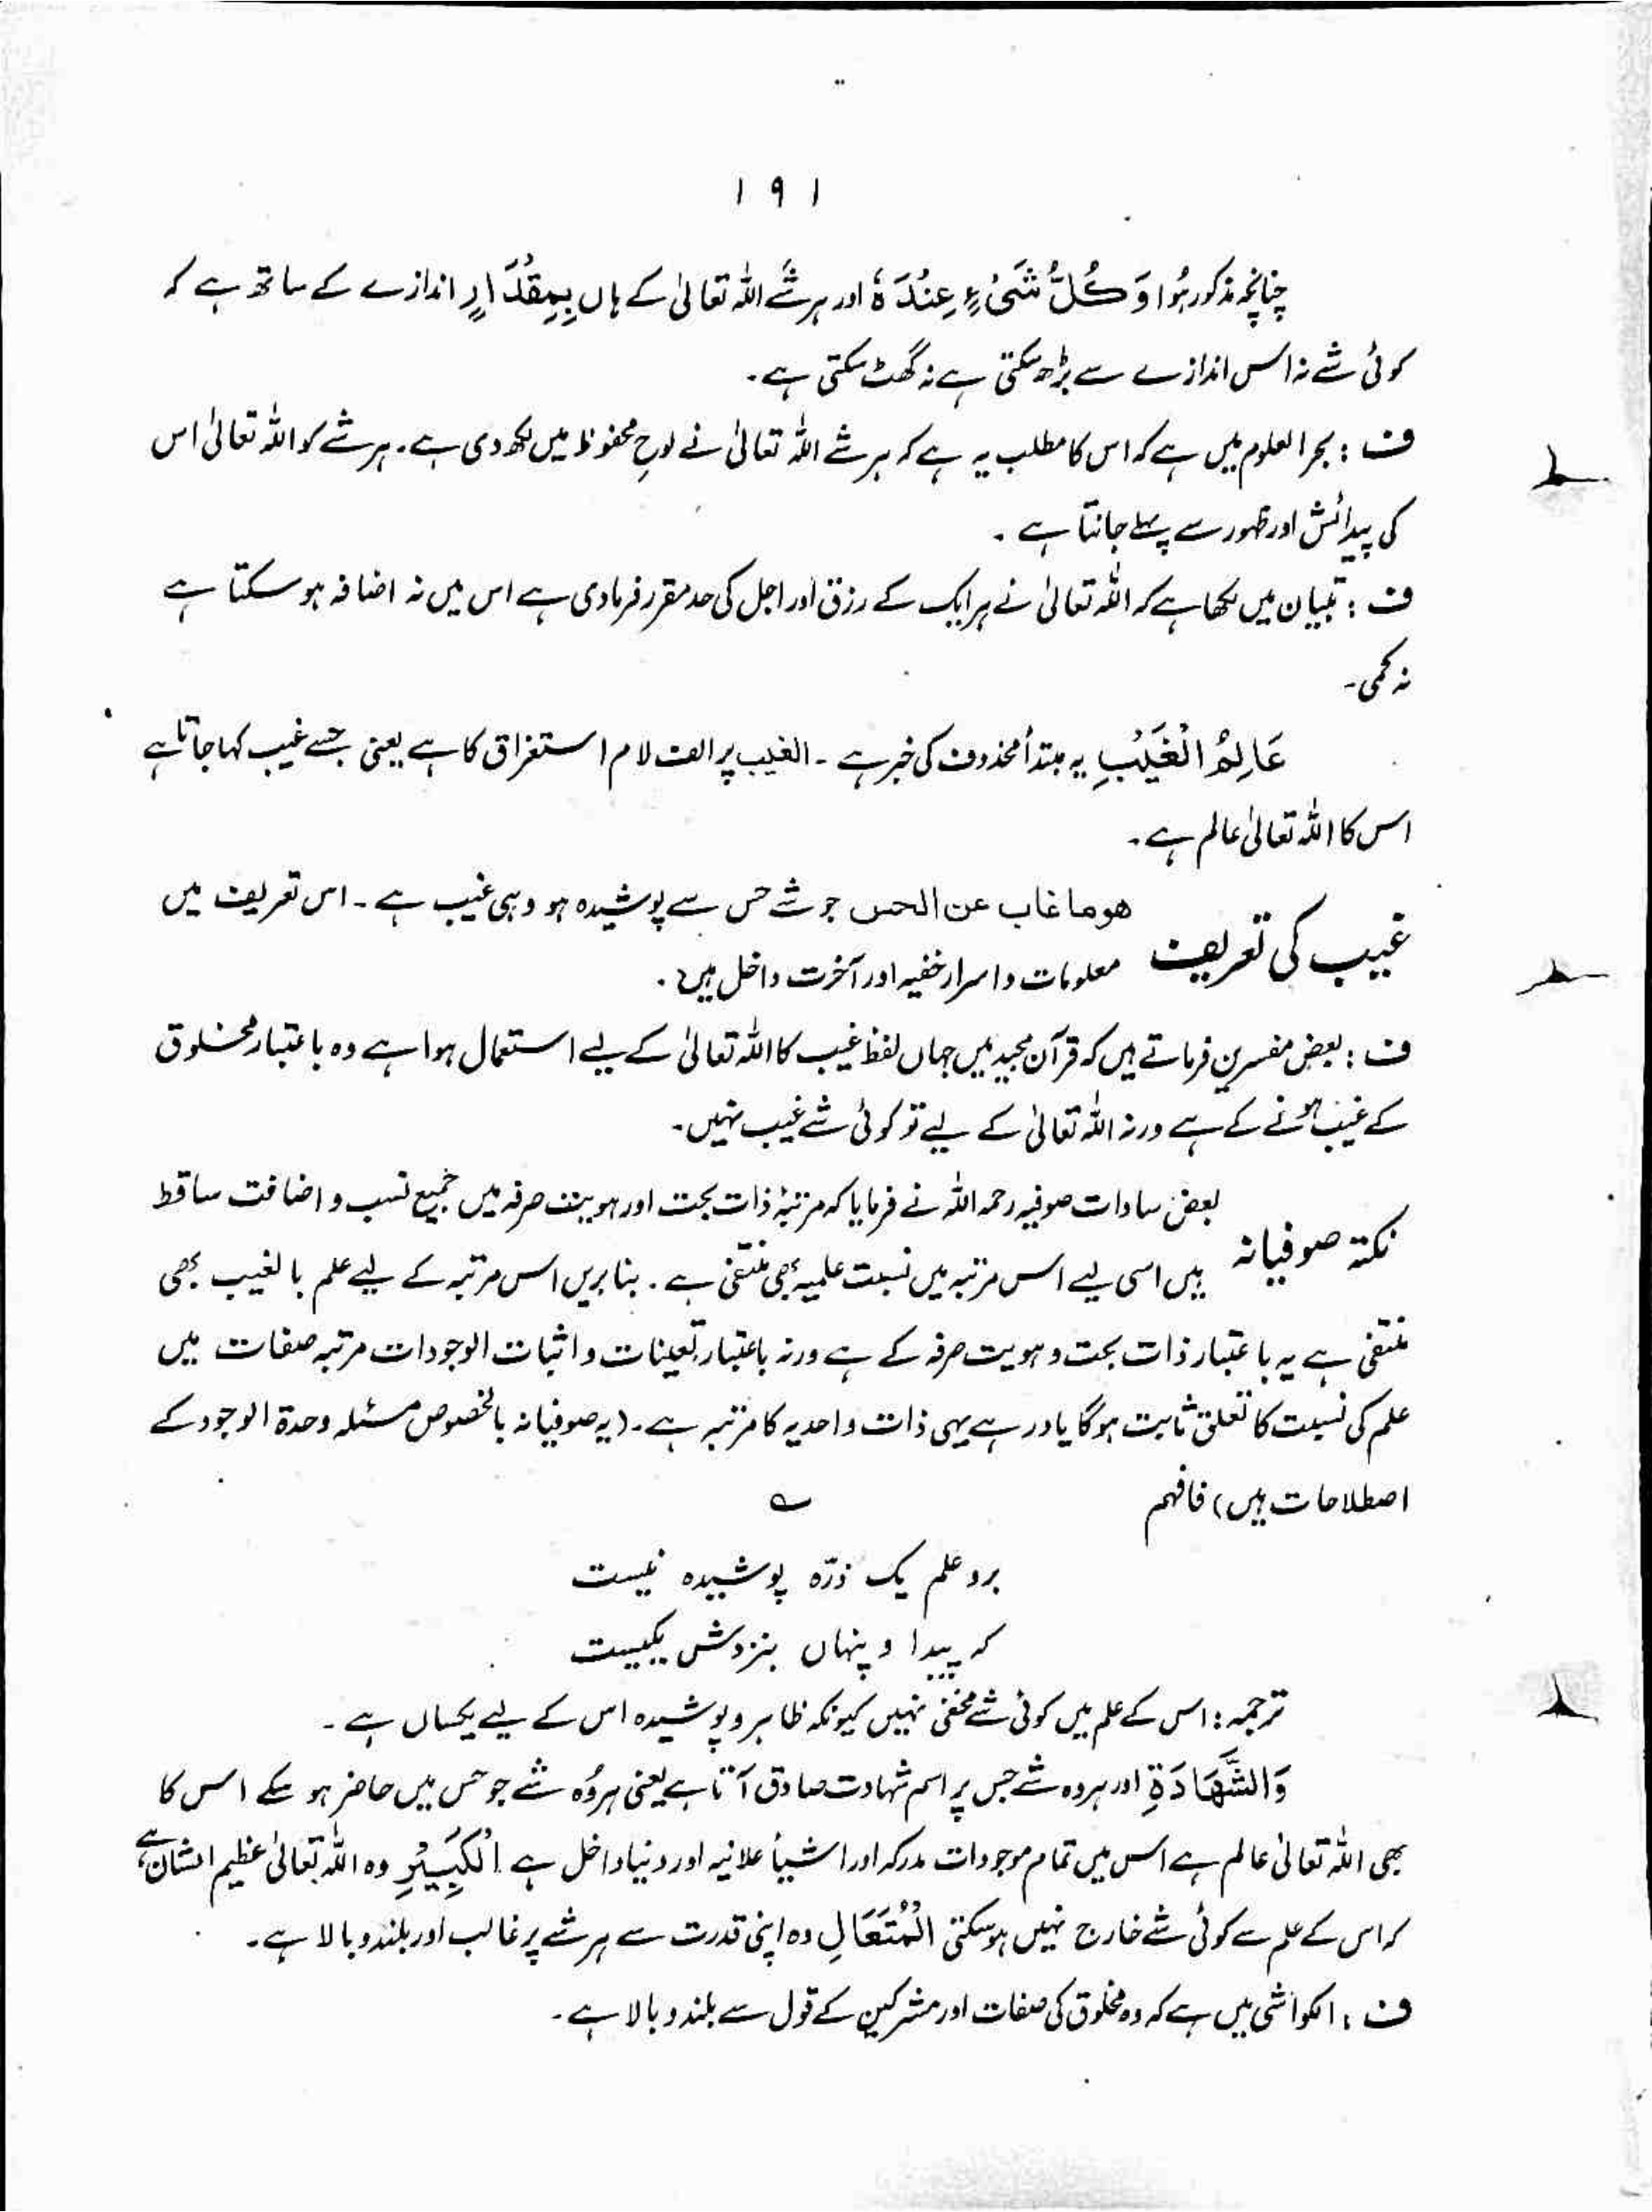 ۱۹۱
چنانچہ مذکور ہُوا وَكُلُّ شَیْءٍ عِنْدَهٗ اور ہر شے اللہ تعالیٰ کے ہاں بِمِقْدَارٍ اندازے کے ساتھ ہے کہ
کوئی شے نہ اس اندازے سے بڑھ سکتی ہے نہ گھٹ سکتی ہے۔
ف : بحر العلوم میں ہے کہ اس کا مطلب یہ ہے کہ ہر شے اللہ تعالیٰ نے لوحِ محفوظ میں لکھ دی ہے۔ ہر شے کو اللہ تعالیٰ اس
کی پیدائش اور ظہور سے پہلے جانتا ہے ۔
ف : تبیان میں لکھا ہے کہ اللہ تعالیٰ نے ہر ایک کے رزق اور اجل کی حد مقرر فرما دی ہے اس میں نہ اضافہ ہو سکتا ہے
نہ کمی۔
عَالِمُ الْغَيْبِ یہ مبتدأ محذوف کی خبر ہے ۔ الغیب پر الف لام استغراق کا ہے یعنی جسے غیب کہا جاتا ہے
اس کا اللہ تعالیٰ عالم ہے۔
غیب کی تعریف هو ما غاب عن الحس جو شے حس سے پوشیدہ ہو وہی غیب ہے ۔ اس تعریف میں
معلومات و اسرار خفیہ اور آخرت داخل ہیں ۔
ف : بعض مفسرین فرماتے ہیں کہ قرآن مجید میں جہاں لفظ غیب کا اللہ تعالیٰ کے لیے استعمال ہوا ہے وہ باعتبار مخلوق
کے غیب ہونے کے ہے ورنہ اللہ تعالیٰ کے لیے تو کوئی شے غیب نہیں۔
نکتہ صوفیانہ بعض سادات صوفیہ رحمہ اللہ نے فرمایا کہ مرتبۂ ذات بحت اور ہویت صرفہ میں جمیع نسب و اضافت ساقط
ہیں اسی لیے اس مرتبہ میں نسبت علمیہ بھی منتفی ہے ۔ بنا بریں اس مرتبہ کے لیے علم بالغیب بھی
منتفی ہے یہ باعتبار ذات بحت و ہویت صرفہ کے ہے ورنہ باعتبار تعینات و اثبات الوجودات مرتبہ صفات میں
علم کی نسبت کا تعلق ثابت ہوگا یاد رہے یہی ذات واحدیہ کا مرتبہ ہے۔ (یہ صوفیانہ بالخصوص مسئلہ وحدۃ الوجود کے
اصطلاحات ہیں) فافہم ؎
برو علم یک ذرّہ پوشیدہ نیست
کہ پیدا و پنہاں بنزدش یکیست
ترجمہ : اس کے علم میں کوئی شے مخفی نہیں کیونکہ ظاہر و پوشیدہ اس کے لیے یکساں ہے ۔
وَالشَّهَادَةِ اور ہر وہ شے جس پر اسم شہادت صادق آتا ہے یعنی ہر وُہ شے جو حس میں حاضر ہو سکے اس کا
بھی اللہ تعالیٰ عالم ہے اس میں تمام موجودات مدرکہ اور اشیأ علانیہ اور دنیا داخل ہے الْكَبِيْرُ وہ اللہ تعالیٰ عظیم الشان ہے
کہ اس کے علم سے کوئی شے خارج نہیں ہو سکتی الْمُتَعَالِ وہ اپنی قدرت سے ہر شے پر غالب اور بلند و بالا ہے۔
ف : الکواشی میں ہے کہ وہ مخلوق کی صفات اور مشرکین کے قول سے بلند و بالا ہے۔